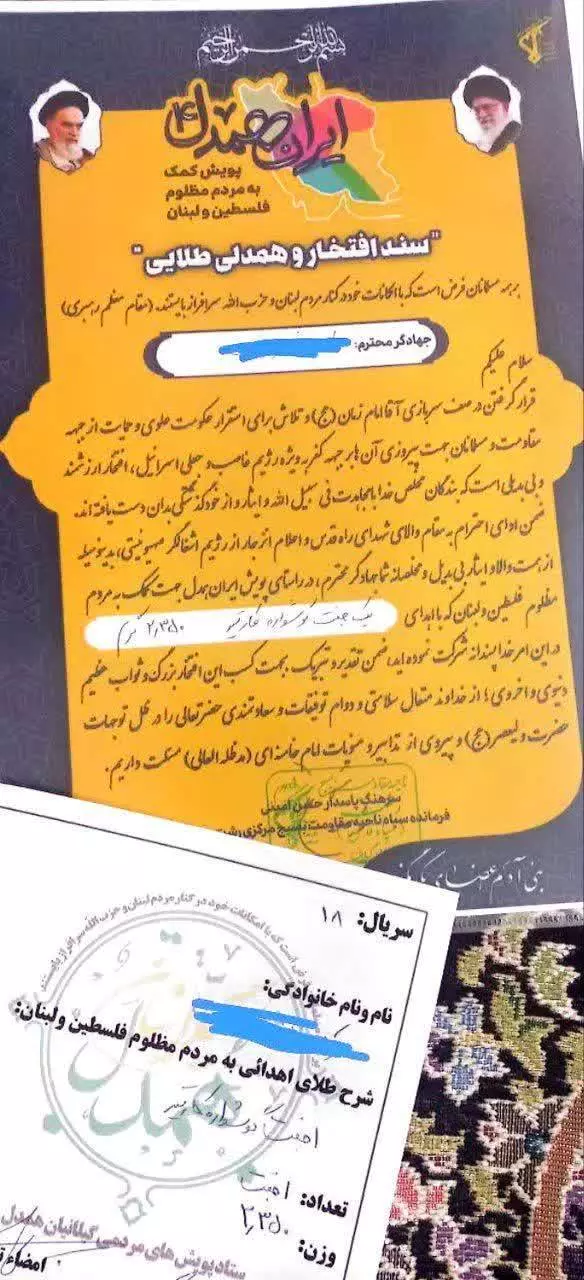 بسم الله الرحمن الرحیم
ایران همدل ۴
پویش کمک
به مردم مظلوم
فلسطین و لبنان
"سند افتخار و همدلی طلایی"
بر همه مسلمانان فرض است که با امکانات خود در کنار مردم لبنان و حزب الله سرافراز بایستند. (مقام معظم رهبری)
جهادگر محترم:
سلام علیکم
قرار گرفتن در صف سربازی آقا امام زمان (عج) و تلاش برای استقرار حکومت علوی و حمایت از جبهه
مقاومت و مسلمانان جهت پیروزی آن ها بر جبهه کفر به ویژه رژیم غاصب و جعلی اسرائیل، افتخار ارزشمند
و بی بدیلی است که بندگان مخلص خدا با مجاهدت فی سبیل الله و ایثار و از خودگذشتگی بدان دست یافته اند.
ضمن ادای احترام به مقام والای شهدای راه قدس و اعلام انزجار از رژیم اشغالگر صهیونیستی، بدینوسیله
از همت والا و ایثار بی بدیل و مخلصانه شما جهادگر محترم، در راستای پویش ایران همدل جهت کمک به مردم
مظلوم فلسطین و لبنان که با اهدای یک جفت گوشواره کارتیه ۲,۳۵۰ گرم
در این امر خداپسندانه شرکت نموده اید، ضمن تقدیر و تبریک بجهت کسب این افتخار بزرگ و ثواب عظیم
دنیوی و اخروی؛ از خداوند متعال سلامتی و دوام توفیقات و سعادتمندی حضرتعالی را در ظل توجهات
حضرت ولیعصر (عج) و پیروی از تدابیر و منویات امام خامنه ای (مدظله العالی) مسئلت داریم.
سرهنگ پاسدار حسن امینی
فرمانده سپاه ناحیه مقاومت بسیج مرکزی رشت
بنی آدم اعضای یکدیگرند
سریال: ۱۸
نام و نام خانوادگی:
شرح طلای اهدائی به مردم مظلوم فلسطین و لبنان:
۱ جفت گوشواره کارتیه
تعداد: ۱ جفت
وزن: ۲,۳۵۰
ستاد پویش های مردمی گیلانیان همدل
امضاء